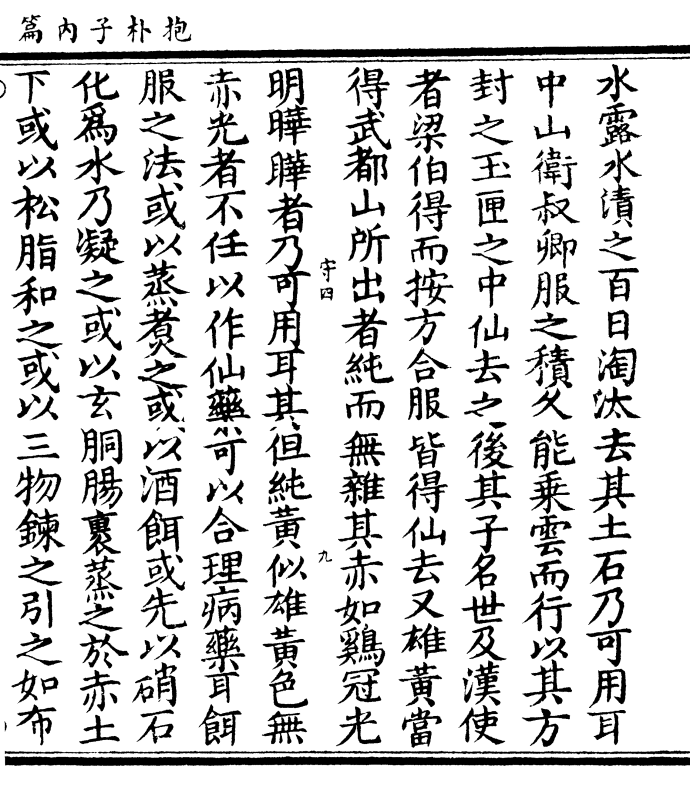 抱朴子內篇
水露水漬之百日淘汰去其土石乃可用耳
中山衛叔卿服之積久能乗雲而行以其方
封之玉匣之中仙去之後其子名世及漢使
者梁伯得而按方合服皆得仙去又雄黃當
得武都山所出者純而無雜其赤如鷄冠光
守四
九
明曄曄者乃可用耳其但純黃似雄黃色無
赤光者不任以作仙藥可以合理病藥耳餌
服之法或以蒸煑之或以酒餌或先以硝石
化爲水乃凝之或以玄胴腸裹蒸之於赤土
下或以松脂和之或以三物鍊之引之如布